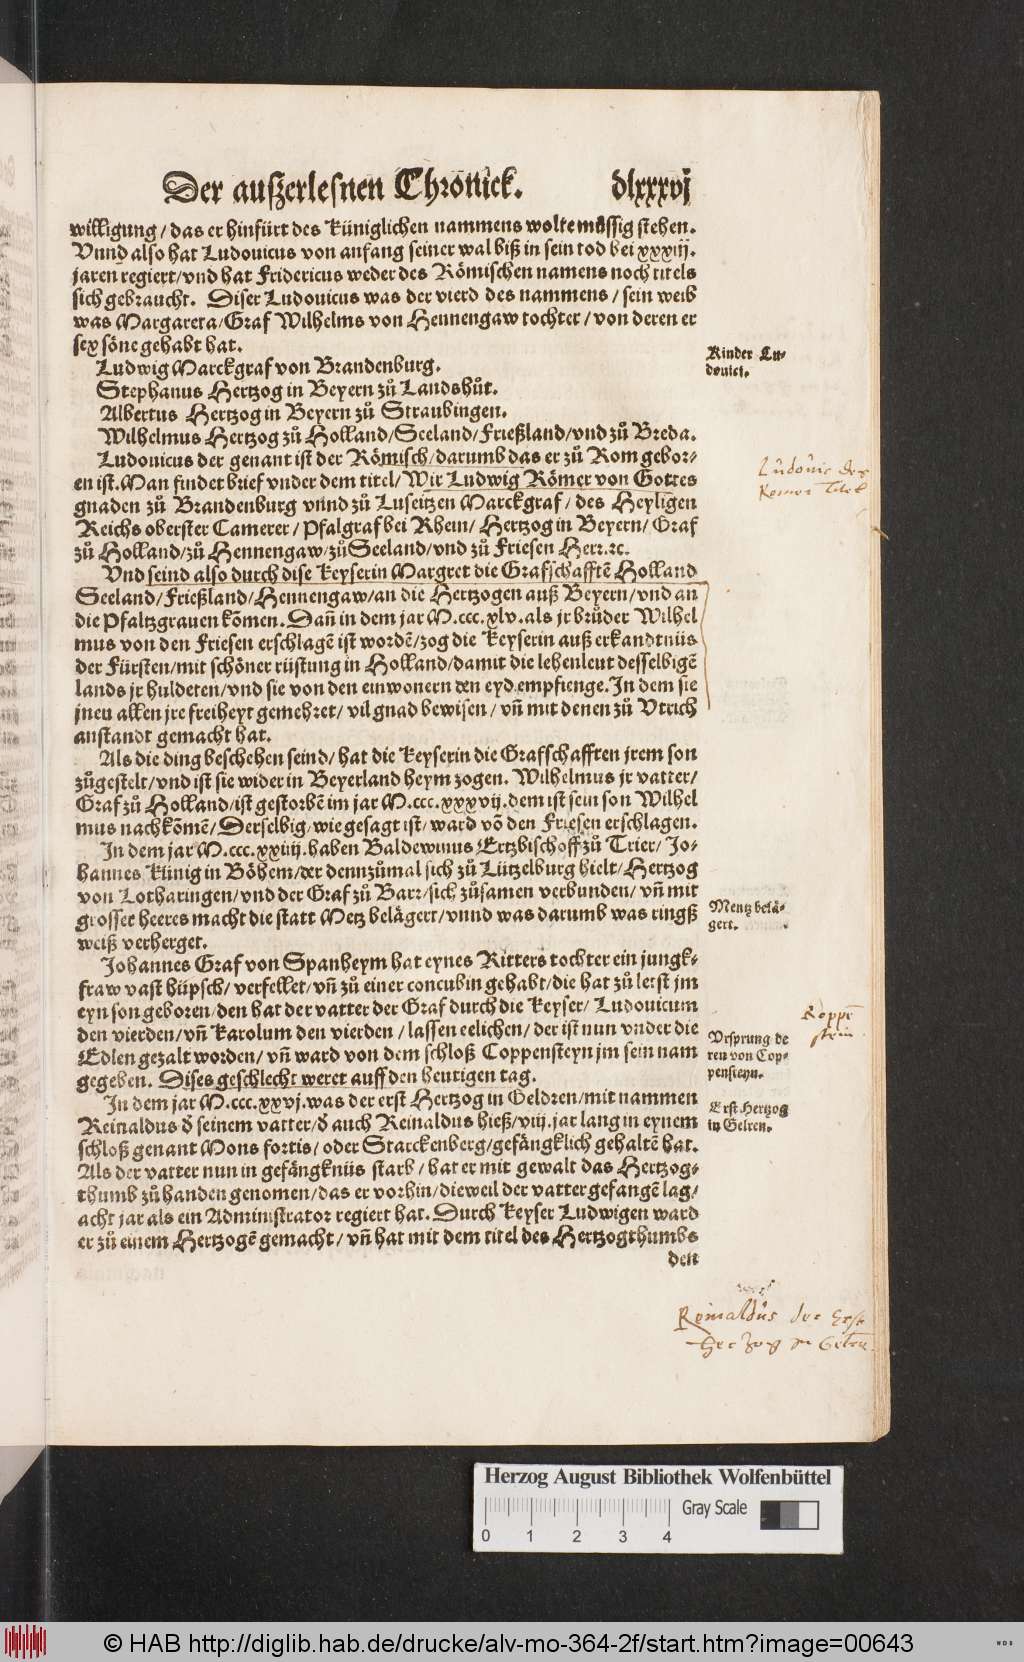 Der auszerlesnen Chronick. dlxxxvj
willigung / das er hinfürt des Küniglichen nammens wolte müssig stehen.
Vnnd also hat Ludouicus von anfang seiner wal biß in sein tod bei xxxiij.
jaren regiert/vnd hat Fridericus weder des Römischen namens noch titels
sich gebraucht. Diser Ludouicus was der vierd des nammens / sein weib
was Margareta/Graf Wilhelms von Hennengaw tochter / von deren er
sex söne gehabt hat.
Kinder Lu-
douici.
Ludwig Marckgraf von Brandenburg.
Stephanus Hertzog in Beyern zů Landshůt.
Albertus Hertzog in Beyern zů Straubingen.
Wilhelmus Hertzog zů Holland/Seeland/Frießland/vnd zů Breda.
Ludouicus der genant ist der Römisch/darumb das er zů Rom gebor-
en ist. Man findet brief vnder dem titel/Wir Ludwig Römer von Gottes
gnaden zů Brandenburg vnnd zů Luseitzen Marckgraf / des Heyligen
Reichs oberster Camerer / Pfalgraf bei Rhein/ Hertzog in Beyern/ Graf
zů Holland/zů Hennengaw/zů Seeland/vnd zů Friesen Herr.ꝛc.
Ludouic des
Romer Titel
Vnd seind also durch dise Keyserin Margret die Grafschafftē Holland
Seeland/Frießland/Hennengaw/an die Hertzogen auß Beyern/vnd an
die Pfaltzgrauen kōmen. Dañ in dem jar M.ccc.xlv.als jr brůder Wilhel
mus von den Friesen erschlagē ist wordē/zog die Keyserin auß erkandtnüs
der Fürsten/mit schöner rüstung in Holland/damit die lehenleut desselbigē
lands jr huldeten/vnd sie von den einwonern den eyd empfienge. In dem sie
jnen allen jre freiheyt gemehret/ vil gnad bewisen / vñ mit denen zů Vtrich
anstandt gemacht hat.
Als die ding beschehen seind/ hat die Keyserin die Grafschafften jrem son
zůgestelt/vnd ist sie wider in Beyerland heym zogen. Wilhelmus jr vatter/
Graf zů Holland/ist gestorbē im jar M.ccc.xxxvij.dem ist sein son Wilhel
mus nachkōmē/ Derselbig/wie gesagt ist/ward vō den Friesen erschlagen.
In dem jar M.ccc.xxiiij.haben Baldewinus Ertzbischoff zů Trier/ Jo-
hannes Künig in Böhem/der dennzůmal sich zů Lützelburg hielt/ Hertzog
von Lotharingen/vnd der Graf zů Barr/sich zůsamen verbunden/ vñ mit
grosser heeres macht die statt Metz belägert/vnnd was darumb was ringß
weiß verherget.
Mentz belä-
gert.
Johannes Graf von Spanheym hat eynes Ritters tochter ein jungk-
fraw vast hüpsch/ verfellet/vñ zů einer concubin gehabt/die hat zů letst jm
eyn son geboren/den hat der vatter der Graf durch die Keyser/ Ludouicum
den vierden/vñ Karolum den vierden / lassen eelichen/ der ist nun vnder die
Edlen gezalt worden/ vñ ward von dem schloß Coppensteyn jm sein nam
gegeben. Dises geschlecht weret auff den heutigen tag.
Koppē
stein
Vrsprung de
ren von Cop-
pensteyn.
In dem jar M.ccc.xxvj.was der erst Hertzog in Geldren/mit nammen
Reinaldus ð seinem vatter/ð auch Reinaldus hieß/viij.jar lang in eynem
schloß genant Mons fortis/ oder Starckenberg/gefängklich gehaltē hat.
Als der vatter nun in gefängknüs starb / hat er mit gewalt das Hertzog-
thumb zů handen genomen/das er vorhin/dieweil der vatter gefangē lag/
acht jar als ein Administrator regiert hat. Durch Keyser Ludwigen ward
er zů einem Hertzogē gemacht / vñ hat mit dem titel des Hertzogthumbs
den
Erst Hertzog
in Gelren.
Reinaldus der Erst
Hertzog zu Gelrn
Herzog August Bibliothek Wolfenbüttel
Gray Scale
0 1 2 3 4
© HAB http://diglib.hab.de/drucke/alv-mo-364-2f/start.htm?image=00643